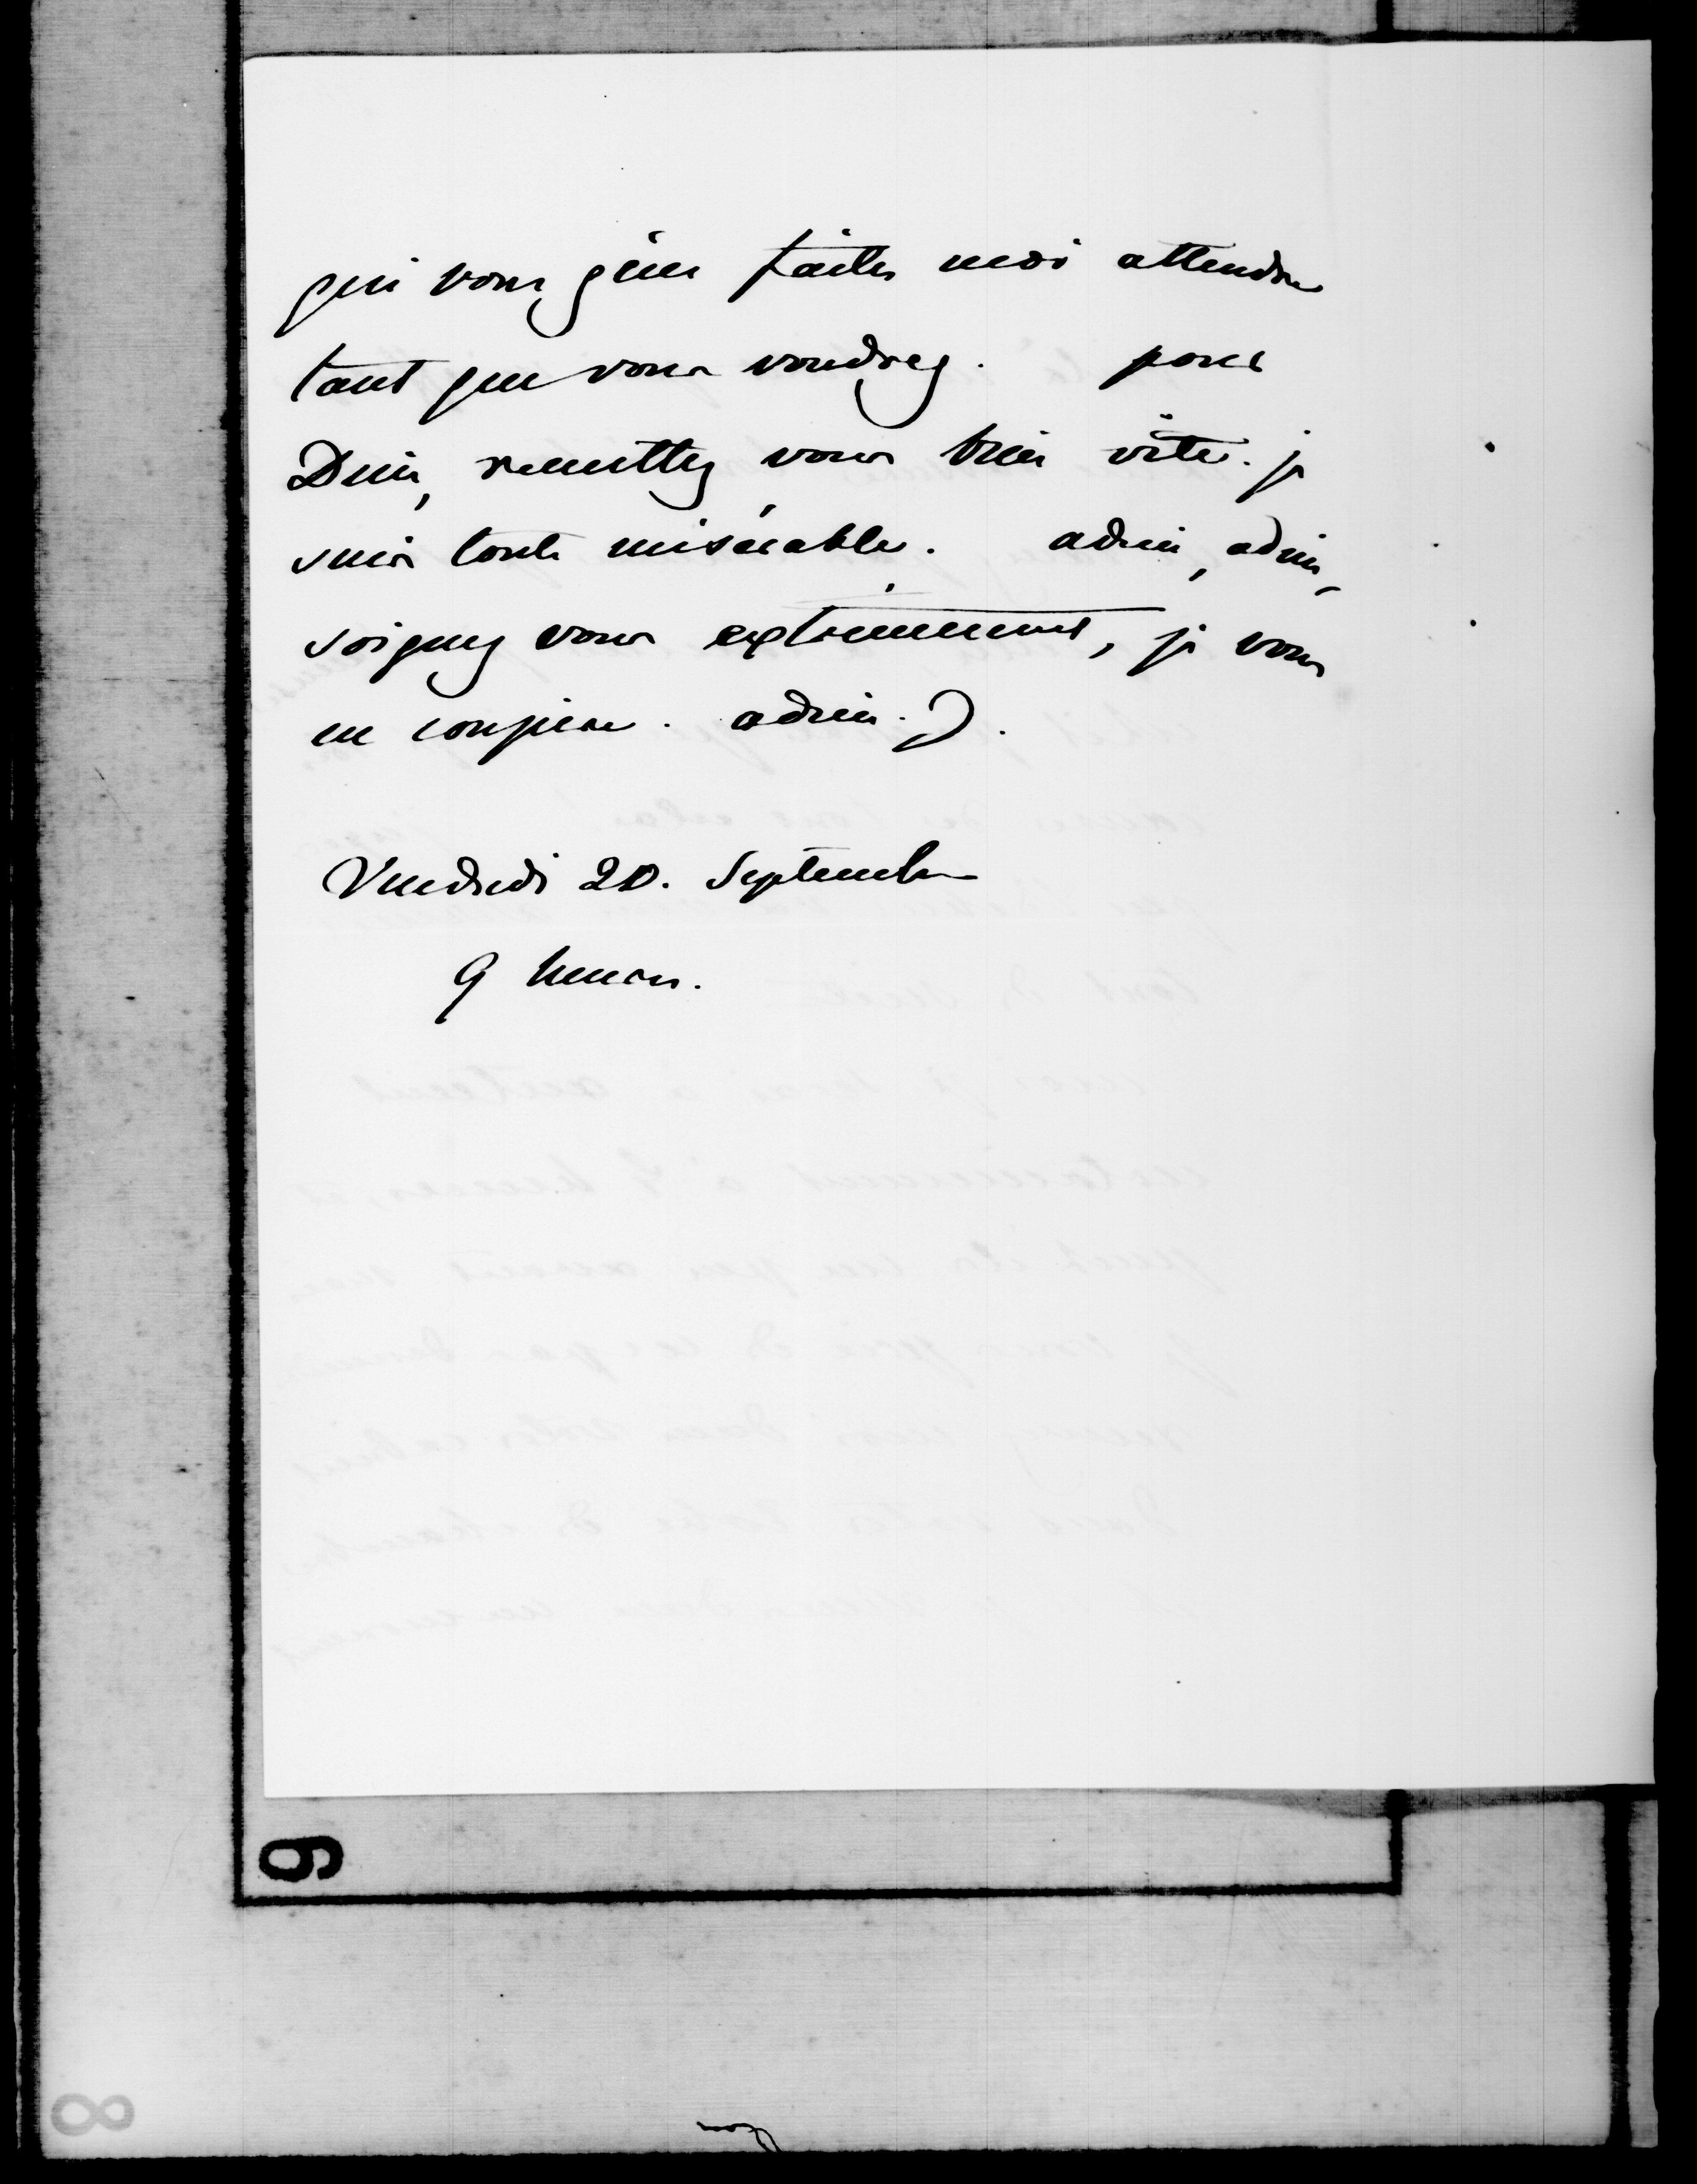 qui vous gène faites moi attendre
tant que vous voudrez. pour
Dieu, remettez vous bien vite. je
suis toute misérable. adieu, adieu,
soignez vous extrèmement, je vous
en conjure. adieu. D.
Vendredi 20. Septembre
9 heures.
9
8